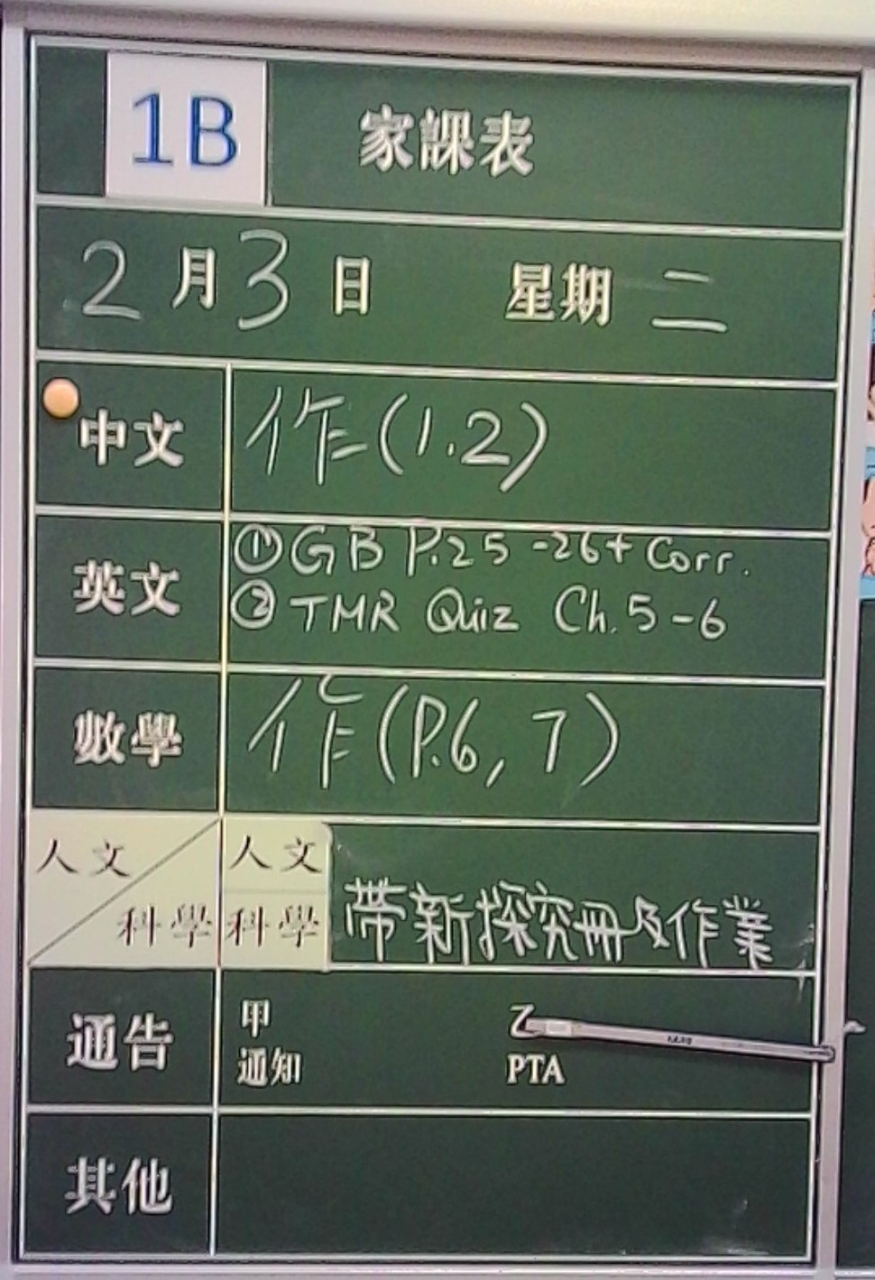 1B 家課表
2月3日 星期二
中文 作(1.2)
英文 ①GB P.25-26+ Corr.
②TMR Quiz Ch.5-6
數學 作(P.6,7)
人文 人文
科學 科學 帶新探究冊及作業
通告 甲 乙
通知 PTA
其他